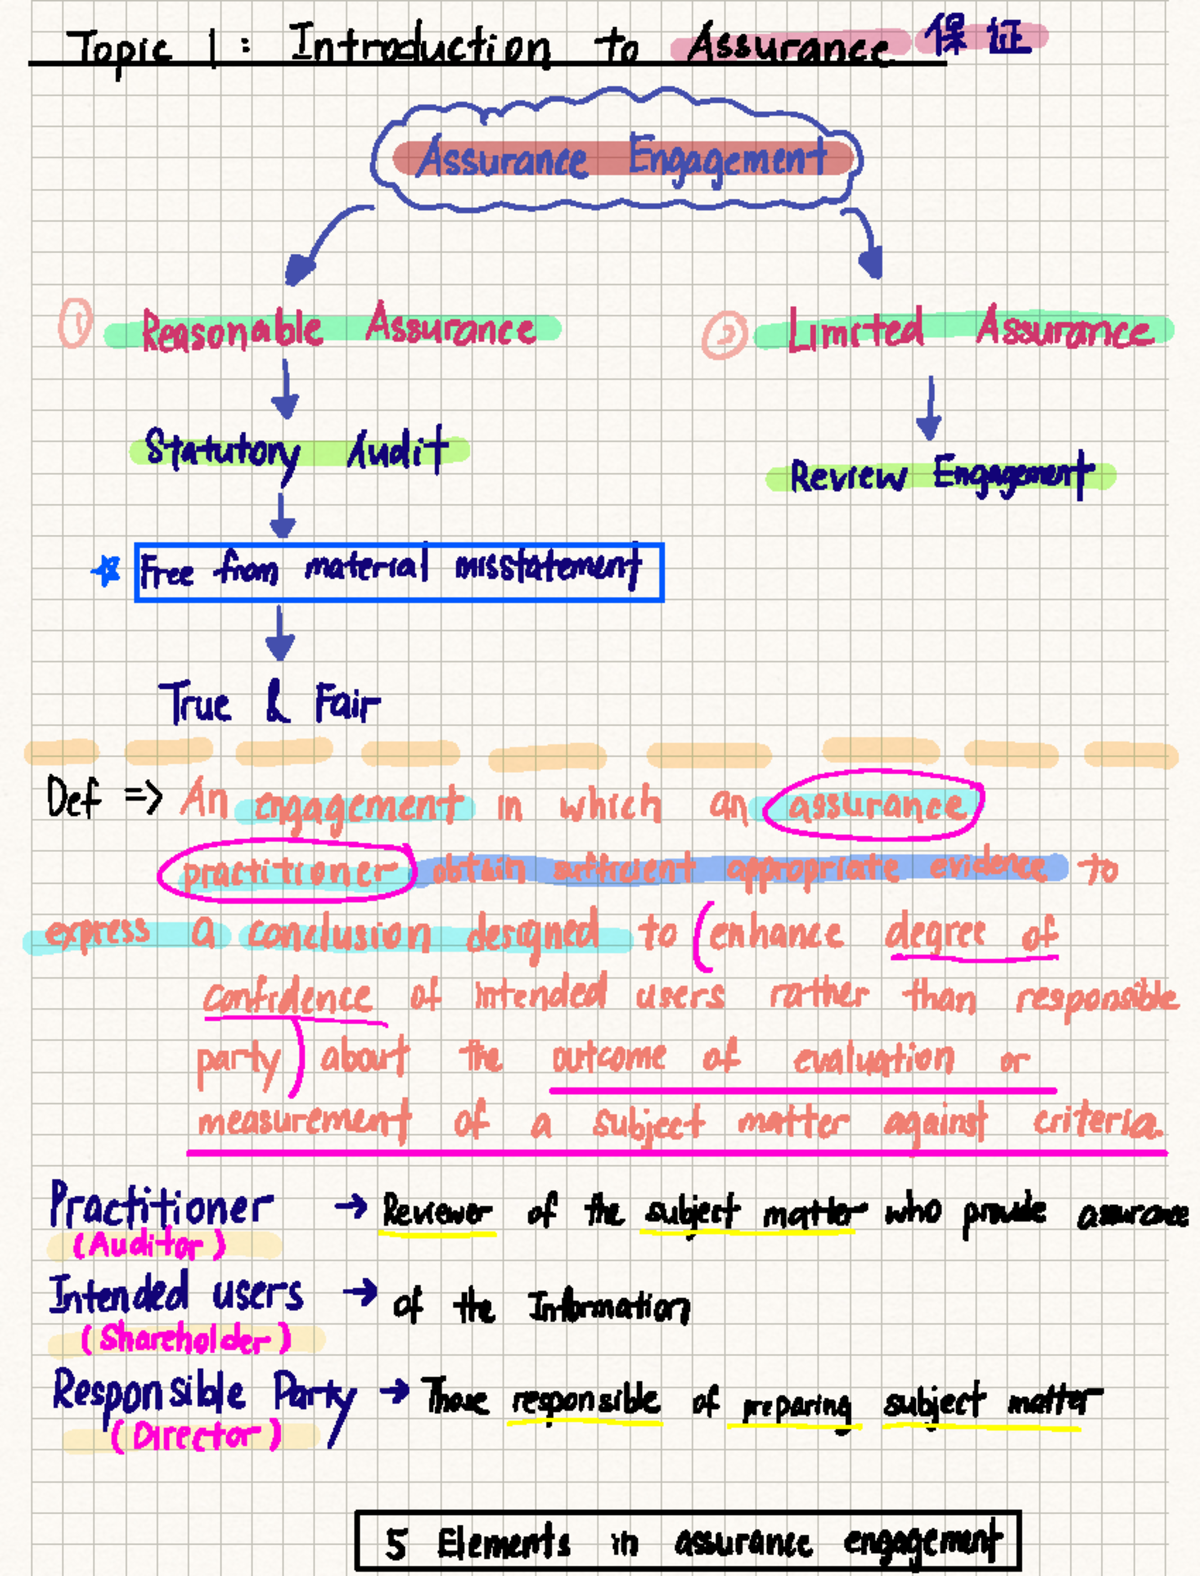 Topic 1 : Introduction to Assurance 保证
Assurance Engagement
① Reasonable Assurance
② Limited Assurance
Statutory Audit
Review Engagement
Free from material misstatement
True & Fair
Def => An engagement in which an assurance
practitioner obtain sufficient appropriate evidence to
express a conclusion designed to (enhance degree of
confidence of intended users rather than responsible
party) about the outcome of evaluation or
measurement of a subject matter against criteria.
Practitioner → Reviewer of the subject matter who provide assurance
(Auditor)
Intended users → of the Information
(Shareholder)
Responsible Party → Those responsible of preparing subject matter
(Director)
5 Elements in assurance engagement